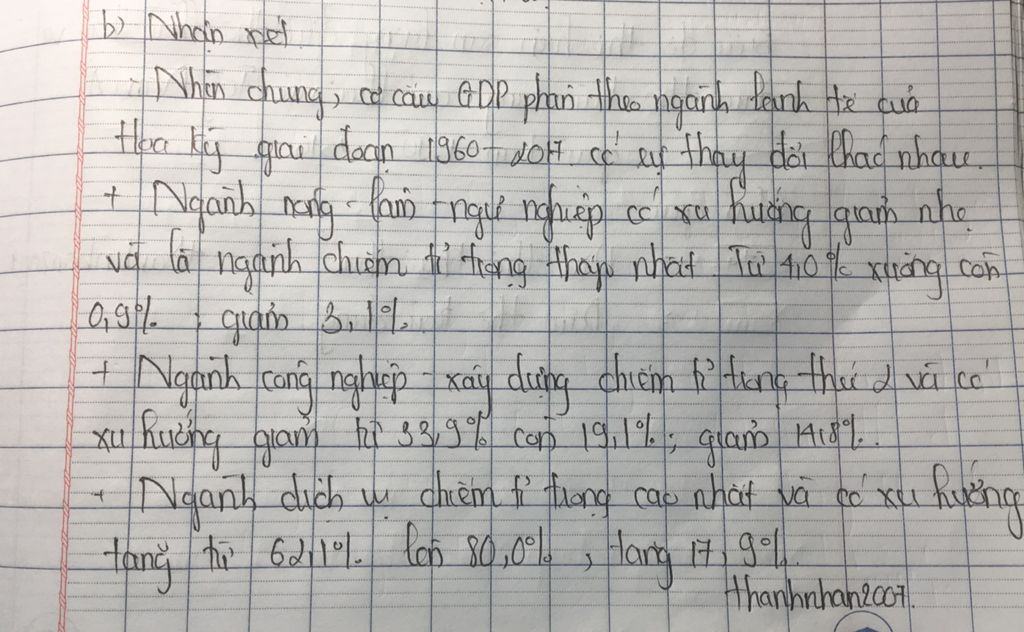 b) Nhận xét
- Nhìn chung, cơ cấu GDP phân theo ngành kinh tế của
Hoa Kỳ giai đoạn 1960-2017. có sự thay đổi khác nhau.
+ Ngành nông - lâm - ngư nghiệp có xu hướng giảm nhẹ
và là ngành chiếm tỉ trọng thấp nhất. Từ 4,0% xuống còn
0,9% ; giảm 3,1%.
+ Ngành công nghiệp - xây dựng chiếm tỉ trọng thứ 2 và có
xu hướng giảm từ 33,9% còn 19,1%; giảm 14,8%.
+ Ngành dịch vụ chiếm tỉ trọng cao nhất và có xu hướng
tăng từ 62,1% lên 80,0%, tăng 17,9%.
thanhnhan2007.